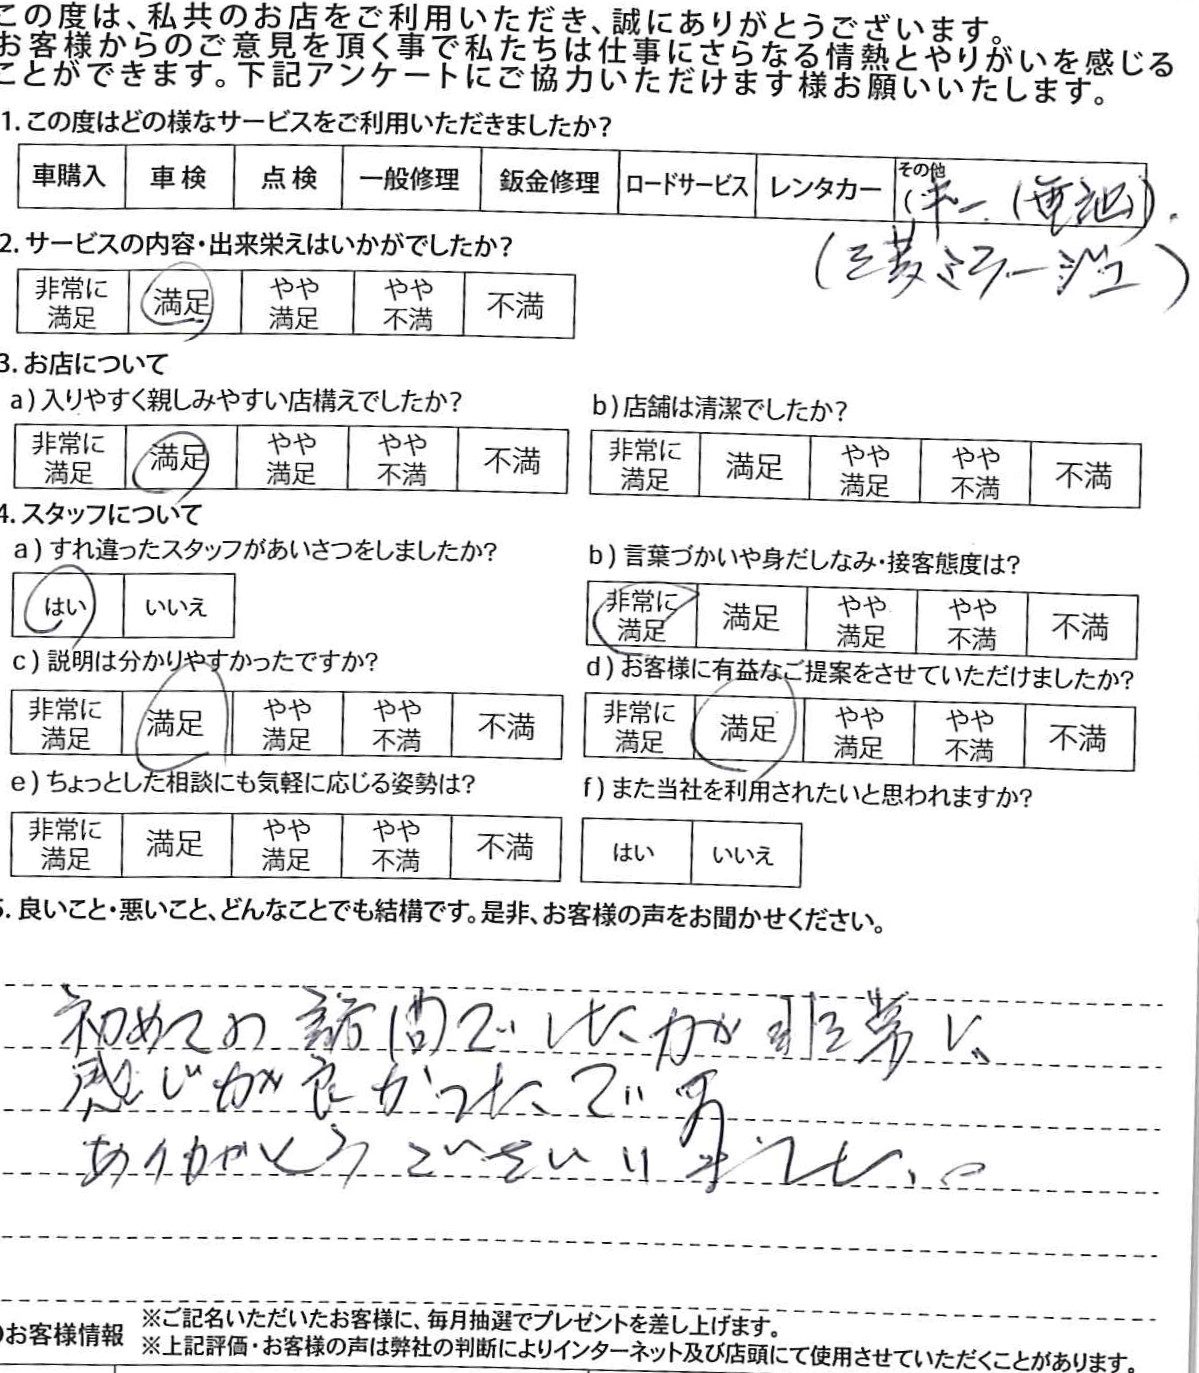 この度は、私共のお店をご利用いただき、誠にありがとうございます。
お客様からのご意見を頂く事で私たちは仕事にさらなる情熱とやりがいを感じる
ことができます。下記アンケートにご協力いただけます様お願いいたします。
1. この度はどの様なサービスをご利用いただきましたか?
車購入 車検 点検 一般修理 鈑金修理 ロードサービス レンタカー その他
(キー(電池)).
(三菱ミラージュ)
2. サービスの内容・出来栄えはいかがでしたか?
非常に満足 満足 やや満足 やや不満 不満
3. お店について
a) 入りやすく親しみやすい店構えでしたか? b) 店舗は清潔でしたか?
非常に満足 満足 やや満足 やや不満 不満 非常に満足 満足 やや満足 やや不満 不満
4. スタッフについて
a) すれ違ったスタッフがあいさつをしましたか? b) 言葉づかいや身だしなみ・接客態度は?
はい いいえ 非常に満足 満足 やや満足 やや不満 不満
c) 説明は分かりやすかったですか? d) お客様に有益なご提案をさせていただけましたか?
非常に満足 満足 やや満足 やや不満 不満 非常に満足 満足 やや満足 やや不満 不満
e) ちょっとした相談にも気軽に応じる姿勢は? f) また当社を利用されたいと思われますか?
非常に満足 満足 やや満足 やや不満 不満 はい いいえ
5. 良いこと・悪いこと、どんなことでも結構です。是非、お客様の声をお聞かせください。
初めての訪問でしたが非常に、
感じが良かったです
ありがとうございました。
お客様情報 ※ご記名いただいたお客様に、毎月抽選でプレゼントを差し上げます。
※上記評価・お客様の声は弊社の判断によりインターネット及び店頭にて使用させていただくことがあります。